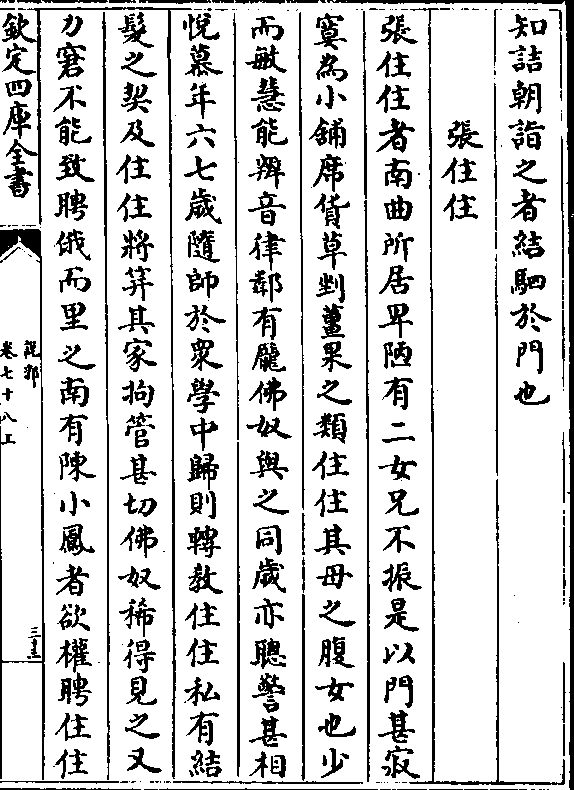 知詰朝詣之者結駟於門也
張住住
張住住者南曲所居卑陋有二女兄不振是以門甚寂
寞為小舖席貨草剉薑果之類住住其母之腹女也少
而敏慧能辨音律鄰有龐佛奴與之同歲亦聰警甚相
悅慕年六七歲隨師於衆學中歸則轉教住住私有結
髮之契及住住將笄其家拘管甚切佛奴稀得見之又
力窘不能致聘俄而里之南有陳小鳳者欲權聘住住
欽定四庫全書
說郛
卷七十八上
三十三